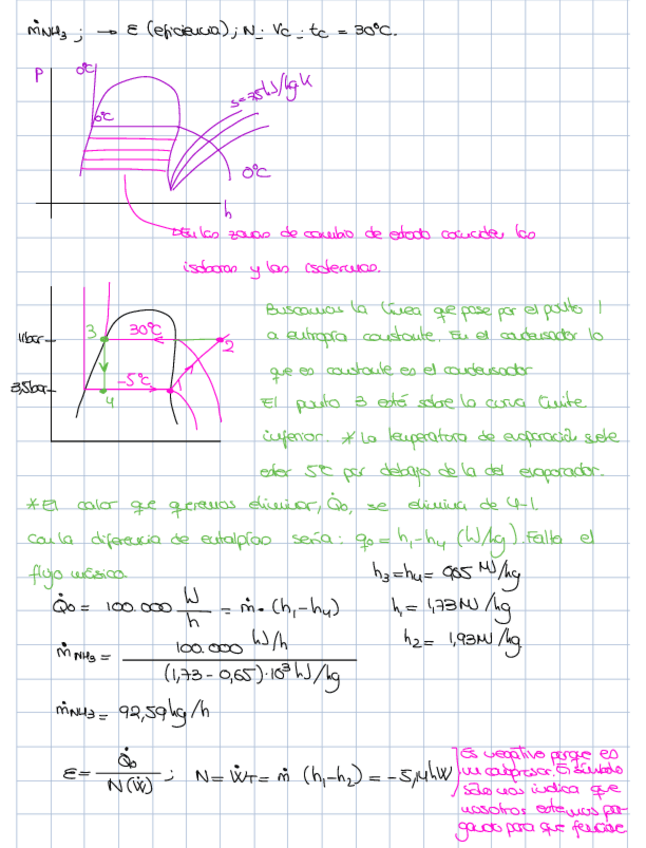 ṁNH₃ ; → ε (eficiencia) ; N ; Vc ; tc = 30°C.
P
0°C
6°C
s=7,5kJ/kgK
0°C
h
En las zonas de cambio de estado coinciden las
isobaras y las isotermas.
11bar
3,5bar
3
30°C
2
-5°C
4
1
Buscamos la línea que pase por el punto 1
a entropía constante. En el condensador lo
que es constante es el condensador
El punto 3 está sobre la curva límite
inferior. * La temperatura de evaporación suele
estar 5°C por debajo de la del evaporador.
* El calor que queremos eliminar, Q̇₀, se elimina de 4-1.
Con la diferencia de entalpías sería: q₀ = h₁-h₄ (kJ/kg). Falta el
flujo másico.
h₃=h₄= 0,65 MJ/kg
Q̇₀ = 100.000 kJ/h = ṁ · (h₁-h₄)
h₁= 1,73MJ/kg
h₂= 1,93MJ/kg
ṁNH₃ = 100.000 kJ/h / (1,73 - 0,65)·10³ kJ/kg
ṁNH₃ = 92,59kg/h
ε = Q̇₀ / N(Ẇ) ; N = ẆT = ṁ (h₁-h₂) = -5,14kW
Es negativo porque es
un compresor. El símbolo
sólo nos indica que
nosotros estamos pa-
gando para que funcione